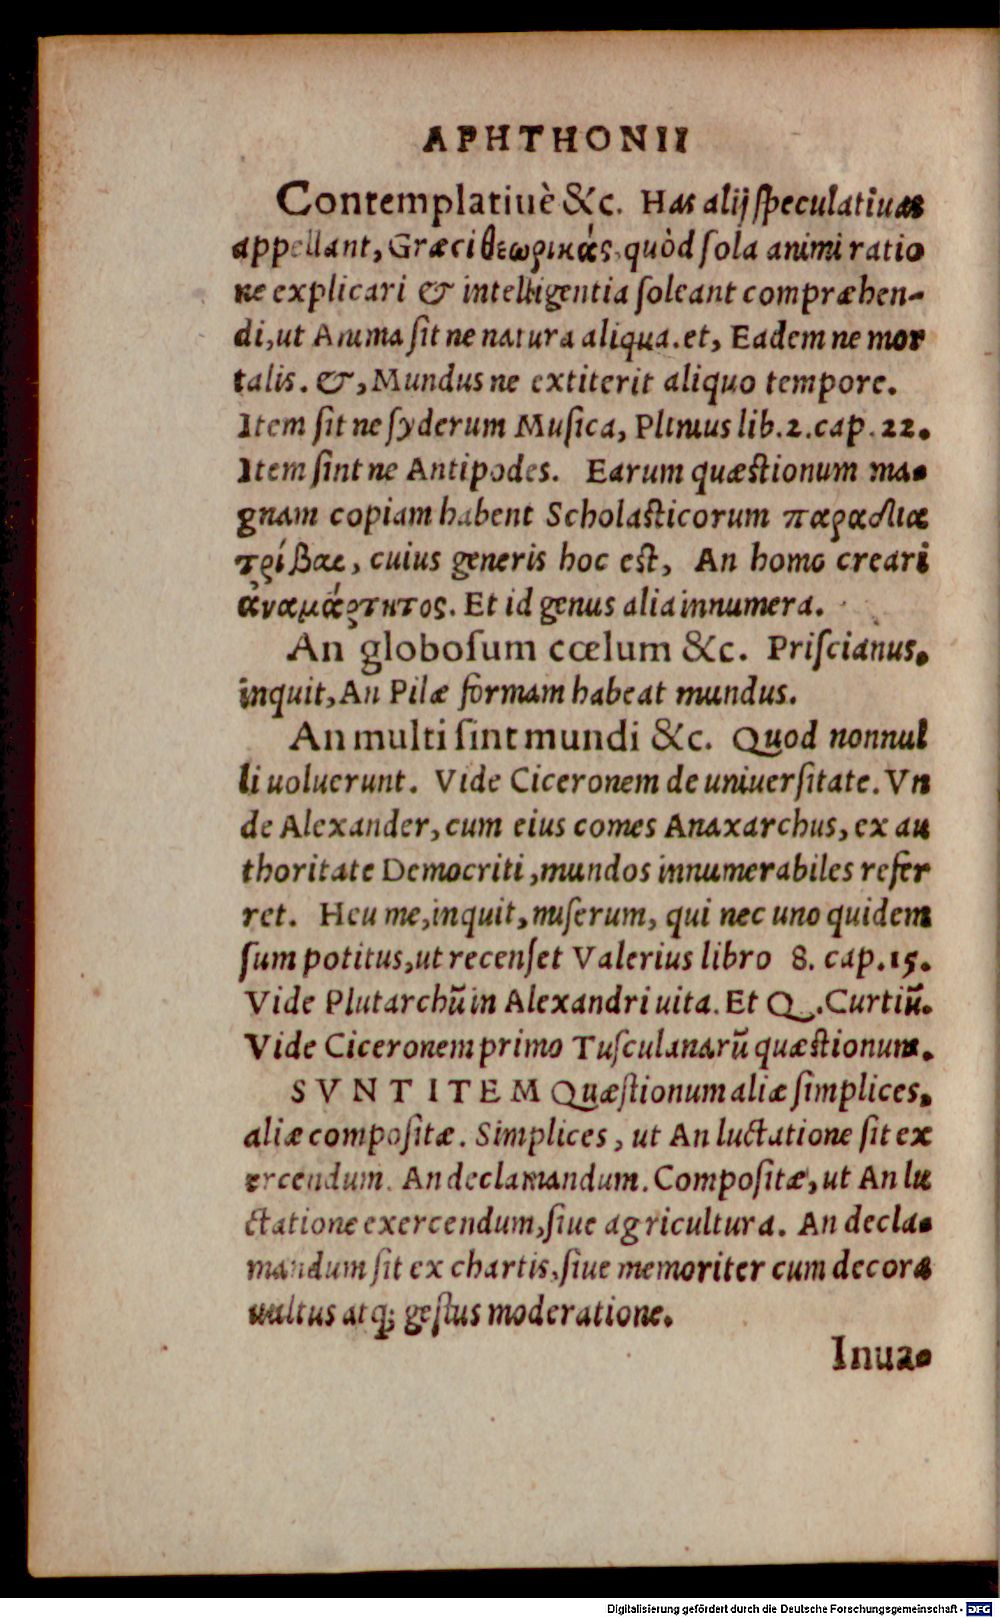 APHTHONII
Contemplatiuè &c. Has alij ſpeculatiuas
appellant, Græci θεωρικάς, quòd ſola animi ratio
ne explicari & intelligentia ſoleant compræhen-
di, ut Anima ſit ne natura aliqua. et, Eadem ne mor
talis. &, Mundus ne extiterit aliquo tempore.
Item ſit ne ſyderum Muſica, Plinius lib. 2. cap. 22.
Item ſint ne Antipodes. Earum quæſtionum ma-
gnam copiam habent Scholaſticorum παραδια
τρίβαι, cuius generis hoc eſt, An homo creari
ἀναμάρτητος. Et id genus alia innumera.
An globoſum cœlum &c. Priſcianus,
inquit, An Pilæ formam habeat mundus.
An multi ſint mundi &c. Quod nonnul
li uoluerunt. Vide Ciceronem de uniuerſitate. Vn
de Alexander, cum eius comes Anaxarchus, ex au
thoritate Democriti, mundos innumerabiles refer
ret. Heu me, inquit, miſerum, qui nec uno quidem
ſum potitus, ut recenſet Valerius libro 8. cap. 15.
Vide Plutarchũ in Alexandri uita. Et Q. Curtiũ.
Vide Ciceronem primo Tuſculanarũ quæſtionum.
SVNT ITEM Quæſtionum aliæ ſimplices,
aliæ compoſitæ. Simplices, ut An luctatione ſit ex
ercendum. An declamandum. Compoſitæ, ut An lu
ctatione exercendum, ſiue agricultura. An decla-
mandum ſit ex chartis, ſiue memoriter cum decora
uultus atq; geſtus moderatione.
Inua-
Digitalisierung gefördert durch die Deutsche Forschungsgemeinschaft - DFG